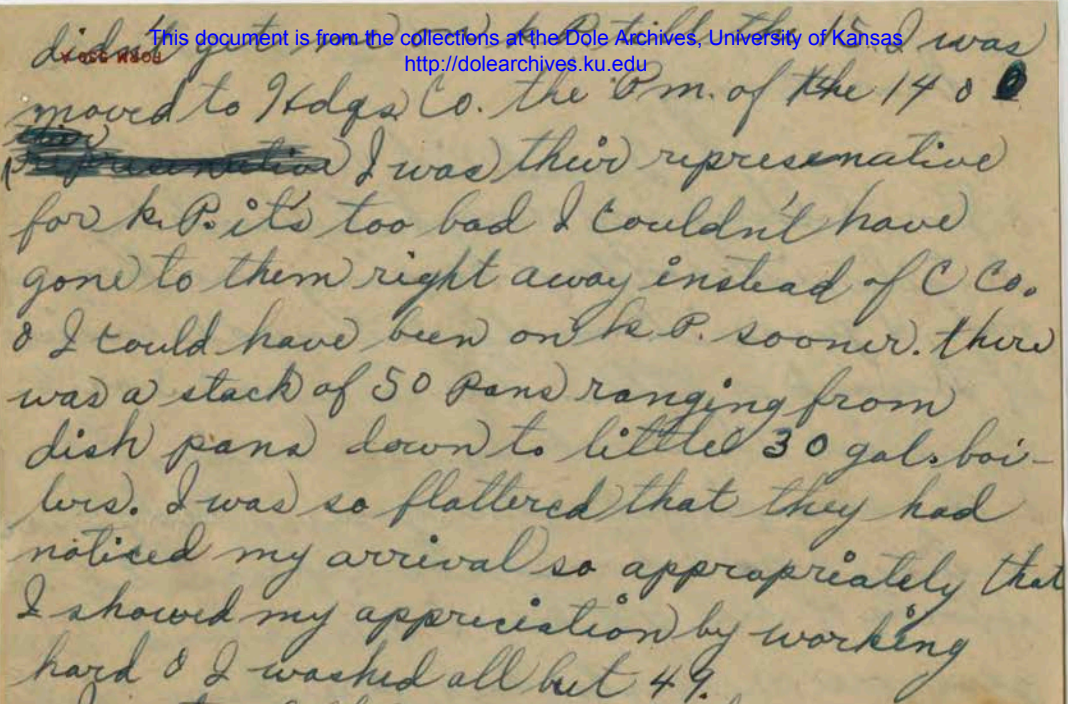 didn't get me on k.P. till the 15. I was
This document is from the collections at the Dole Archives, University of Kansas
http://dolearchives.ku.edu
FORM 330 A
moved to Hdqs Co. the P.m. of the 14 &
I was their represenative
for k.P. it's too bad I couldn't have
gone to them right away instead of C Co.
& I could have been on k.P. sooner. there
was a stack of 50 pans ranging from
dish pans down to little 30 gal. boi-
lers. I was so flattered that they had
noticed my arrival so appropriately that
I showed my appreciation by working
hard & I washed all but 49.